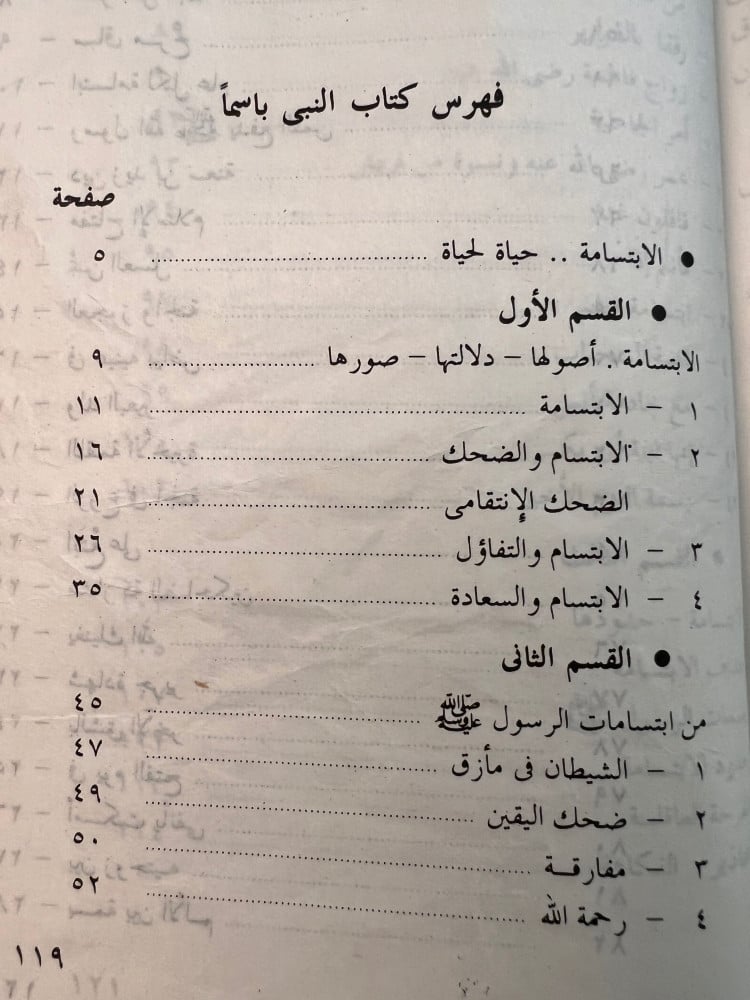 فهرس كتاب النبى باسماً
صفحة
● الابتسامة .. حياة لحياة ........ ٥
● القسم الأول
الابتسامة . أصولها - دلالتها - صورها ........ ٩
١ - الابتسامة ........ ١١
٢ - الابتسام والضحك ........ ١٦
الضحك الإنتقامى ........ ٢١
٣ - الابتسام والتفاؤل ........ ٢٦
٤ - الابتسام والسعادة ........ ٣٥
● القسم الثانى
من ابتسامات الرسول ﷺ ........ ٤٥
١ - الشيطان فى مأزق ........ ٤٧
٢ - ضحك اليقين ........ ٤٩
٣ - مفارقة ........ ٥٠
٤ - رحمة الله ........ ٥٢
١١٩